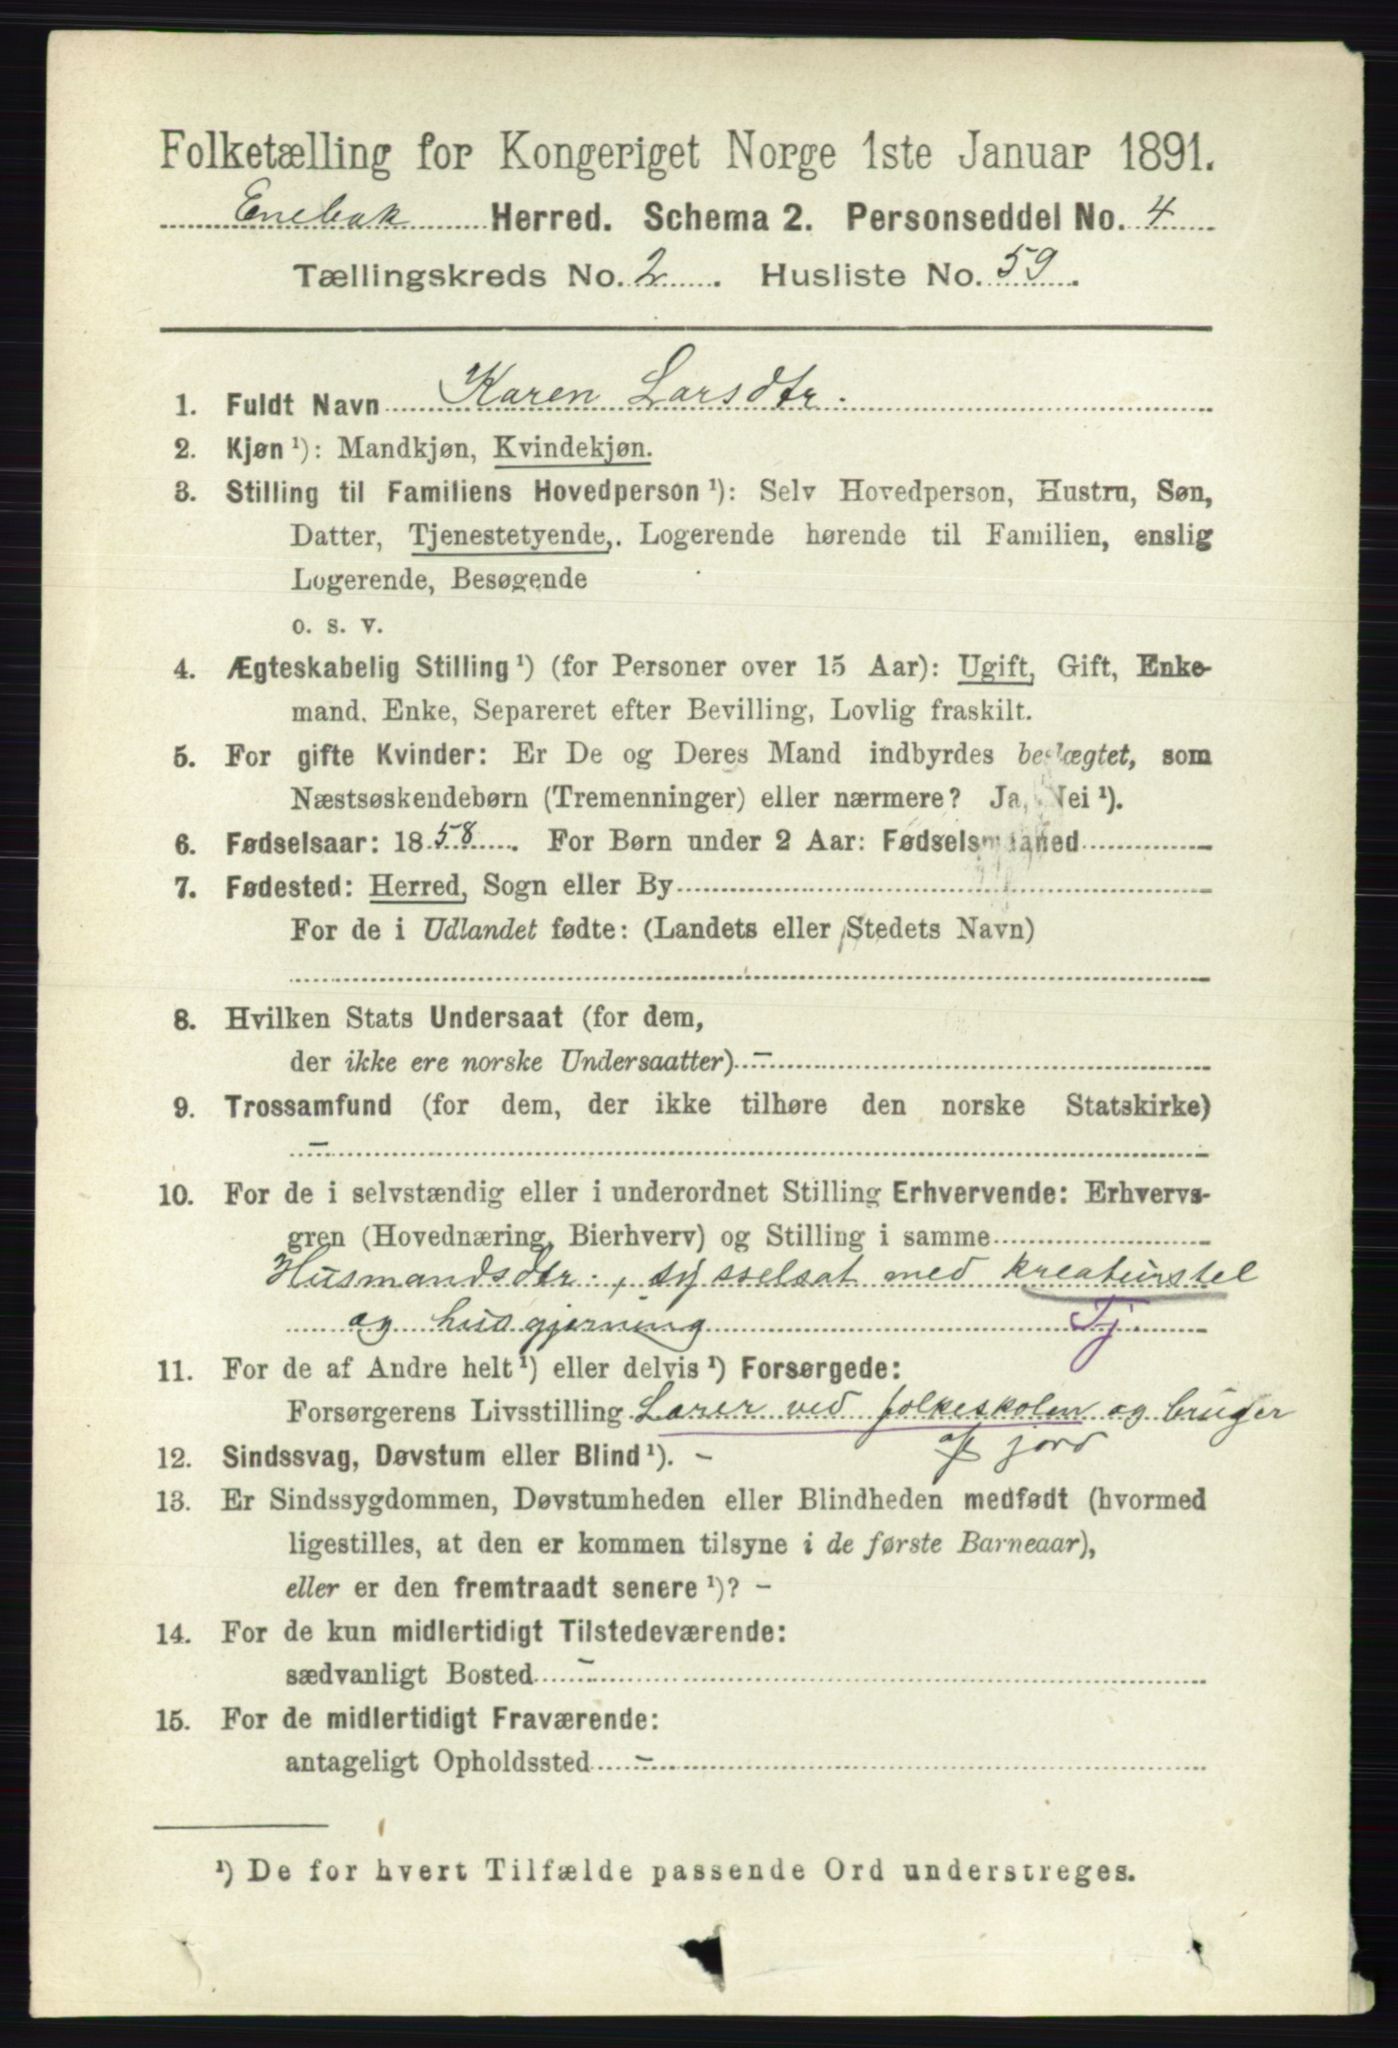 Folketælling for Kongeriget Norge 1ste Januar 1891.
Enebak Herred. Schema 2. Personseddel No. 4
Tællingskreds No. 2. Husliste No. 59.
1. Fuldt Navn Karen Larsdtr.
2. Kjøn ¹): Mandkjøn, Kvindekjøn.
3. Stilling til Familiens Hovedperson ¹): Selv Hovedperson, Hustru, Søn,
Datter, Tjenestetyende, Logerende hørende til Familien, enslig
Logerende, Besøgende
o. s. v.
4. Ægteskabelig Stilling ¹) (for Personer over 15 Aar): Ugift, Gift, Enke-
mand, Enke, Separeret efter Bevilling, Lovlig fraskilt.
5. For gifte Kvinder: Er De og Deres Mand indbyrdes beslægtet, som
Næstsøskendebørn (Tremenninger) eller nærmere? Ja, Nei ¹).
6. Fødselsaar: 1858. For Børn under 2 Aar: Fødselsmaaned
7. Fødested: Herred, Sogn eller By
For de i Udlandet fødte: (Landets eller Stedets Navn)
8. Hvilken Stats Undersaat (for dem,
der ikke ere norske Undersaatter) –
9. Trossamfund (for dem, der ikke tilhøre den norske Statskirke)
–
10. For de i selvstændig eller i underordnet Stilling Erhvervende: Erhvervs-
gren (Hovednæring, Bierhverv) og Stilling i samme
Husmandsdtr., sysselsat med kreaturstel
og husgjerning Tj.
11. For de af Andre helt ¹) eller delvis ¹) Forsørgede:
Forsørgerens Livsstilling Lærer ved folkeskolen og bruger
af jord
12. Sindssvag, Døvstum eller Blind ¹). –
13. Er Sindssygdommen, Døvstumheden eller Blindheden medfødt (hvormed
ligestilles, at den er kommen tilsyne i de første Barneaar),
eller er den fremtraadt senere ¹)? –
14. For de kun midlertidigt Tilstedeværende:
sædvanligt Bosted –
15. For de midlertidigt Fraværende:
antageligt Opholdssted –
¹) De for hvert Tilfælde passende Ord understreges.